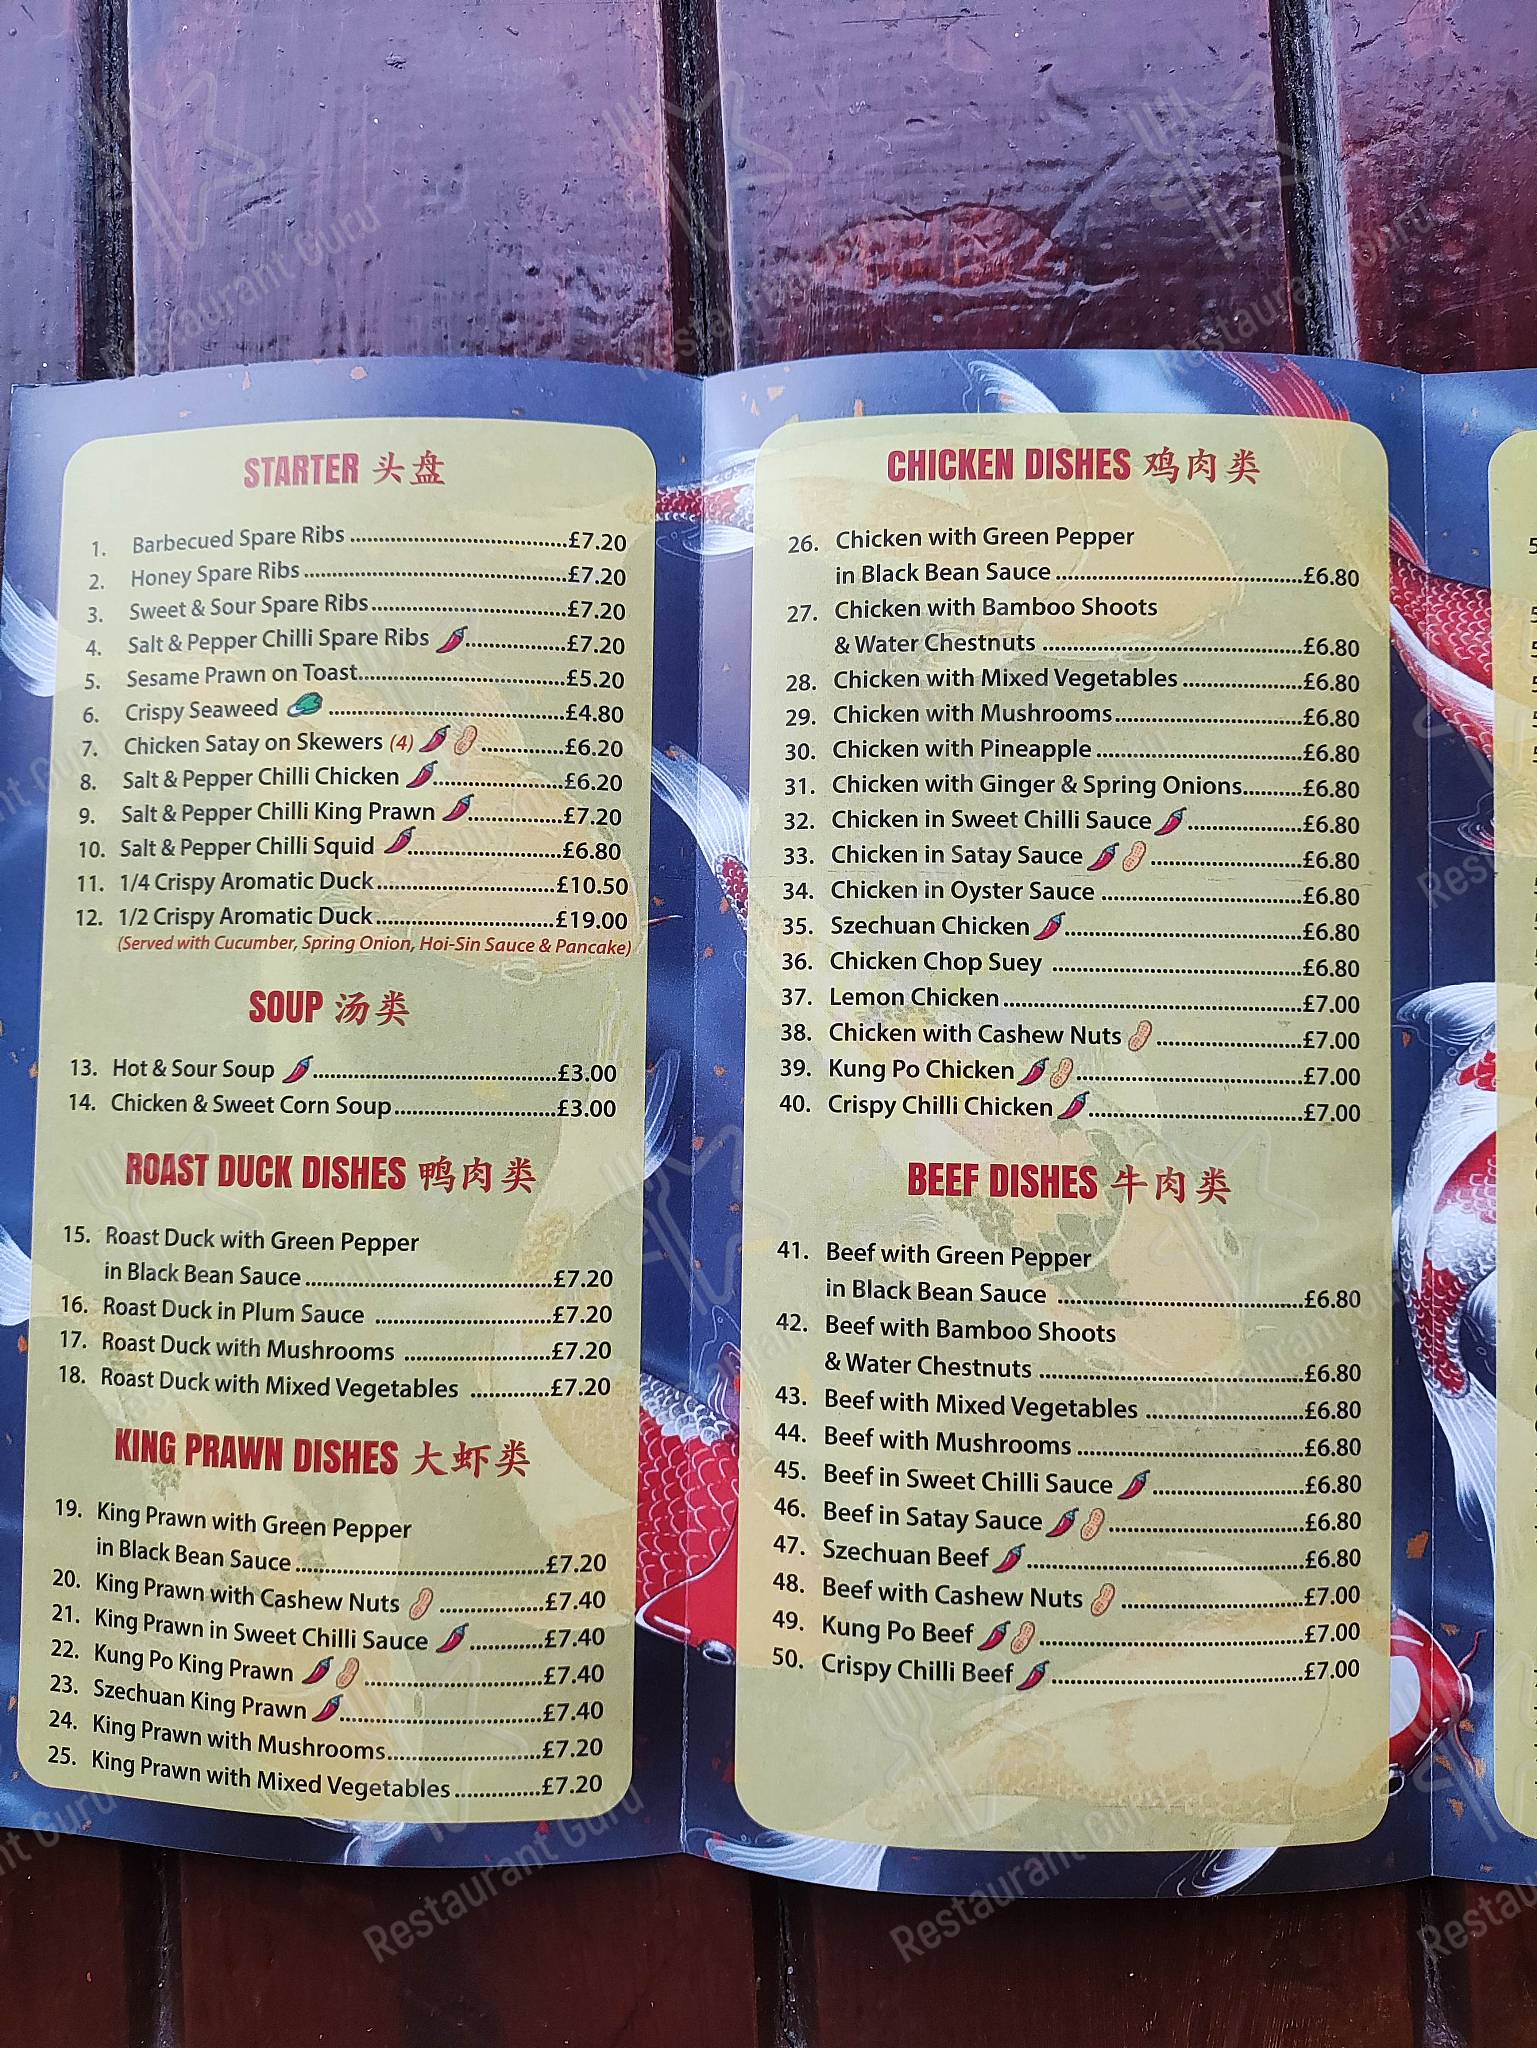 STARTER 头盘
1. Barbecued Spare Ribs ....................................£7.20
2. Honey Spare Ribs ............................................£7.20
3. Sweet & Sour Spare Ribs.................................£7.20
4. Salt & Pepper Chilli Spare Ribs .................£7.20
5. Sesame Prawn on Toast...................................£5.20
6. Crispy Seaweed .......................................£4.80
7. Chicken Satay on Skewers (4) ..............£6.20
8. Salt & Pepper Chilli Chicken ......................£6.20
9. Salt & Pepper Chilli King Prawn ................£7.20
10. Salt & Pepper Chilli Squid ..........................£6.80
11. 1/4 Crispy Aromatic Duck..............................£10.50
12. 1/2 Crispy Aromatic Duck..............................£19.00
(Served with Cucumber, Spring Onion, Hoi-Sin Sauce & Pancake)
SOUP 汤类
13. Hot & Sour Soup .........................................£3.00
14. Chicken & Sweet Corn Soup...........................£3.00
ROAST DUCK DISHES 鸭肉类
15. Roast Duck with Green Pepper
in Black Bean Sauce .........................................£7.20
16. Roast Duck in Plum Sauce .............................£7.20
17. Roast Duck with Mushrooms ........................£7.20
18. Roast Duck with Mixed Vegetables .............£7.20
KING PRAWN DISHES 大虾类
19. King Prawn with Green Pepper
in Black Bean Sauce .........................................£7.20
20. King Prawn with Cashew Nuts .................£7.40
21. King Prawn in Sweet Chilli Sauce ............£7.40
22. Kung Po King Prawn ..............................£7.40
23. Szechuan King Prawn ..................................£7.40
24. King Prawn with Mushrooms..........................£7.20
25. King Prawn with Mixed Vegetables ..............£7.20
CHICKEN DISHES 鸡肉类
26. Chicken with Green Pepper
in Black Bean Sauce .........................................£6.80
27. Chicken with Bamboo Shoots
& Water Chestnuts ...........................................£6.80
28. Chicken with Mixed Vegetables ....................£6.80
29. Chicken with Mushrooms...............................£6.80
30. Chicken with Pineapple ..................................£6.80
31. Chicken with Ginger & Spring Onions..........£6.80
32. Chicken in Sweet Chilli Sauce ...................£6.80
33. Chicken in Satay Sauce .........................£6.80
34. Chicken in Oyster Sauce .................................£6.80
35. Szechuan Chicken .......................................£6.80
36. Chicken Chop Suey .........................................£6.80
37. Lemon Chicken..................................................£7.00
38. Chicken with Cashew Nuts ........................£7.00
39. Kung Po Chicken ......................................£7.00
40. Crispy Chilli Chicken ....................................£7.00
BEEF DISHES 牛肉类
41. Beef with Green Pepper
in Black Bean Sauce .........................................£6.80
42. Beef with Bamboo Shoots
& Water Chestnuts ............................................£6.80
43. Beef with Mixed Vegetables ..........................£6.80
44. Beef with Mushrooms .....................................£6.80
45. Beef in Sweet Chilli Sauce .........................£6.80
46. Beef in Satay Sauce ................................£6.80
47. Szechuan Beef ..............................................£6.80
48. Beef with Cashew Nuts ..............................£7.00
49. Kung Po Beef ............................................£7.00
50. Crispy Chilli Beef ..........................................£7.00
Restaurant Guru